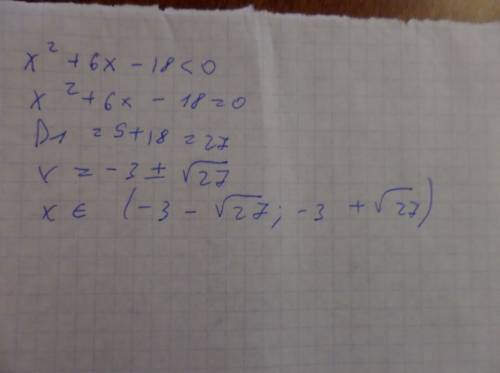 x² + 6x - 18 < 0
x² + 6x - 18 = 0
D1 = 9 + 18 = 27
x = -3 ± √27
x ∈ (-3 - √27; -3 + √27)